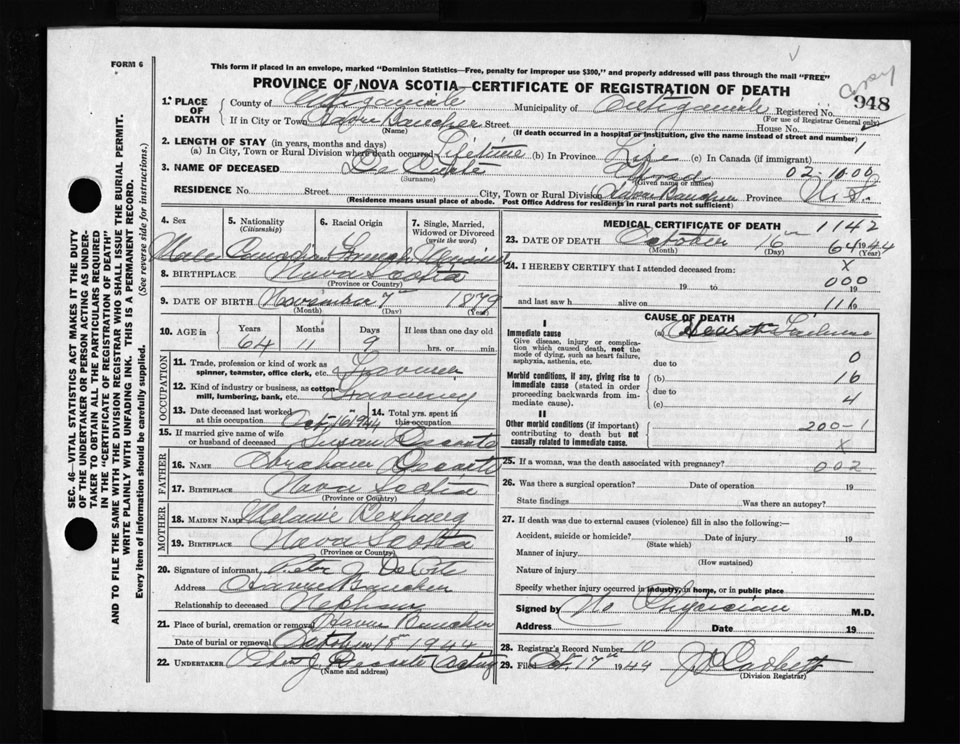 FORM 6
This form if placed in an envelope, marked "Dominion Statistics—Free, penalty for improper use $300," and properly addressed will pass through the mail "FREE"
PROVINCE OF NOVA SCOTIA—CERTIFICATE OF REGISTRATION OF DEATH
Copy
948
1. PLACE OF DEATH
County of Antigonish Municipality of Antigonish Registered No.
(For use of Registrar General only)
If in City or Town Havre Boucher Street House No.
(Name) (If death occurred in a hospital or institution, give name instead of street and number)
2. LENGTH OF STAY (in years, months and days) 1
(a) In City, Town or Rural Division where death occurred Lifetime (b) In Province Life (c) In Canada (if immigrant)
3. NAME OF DECEASED De Coste 02-10.00
(Surname) (Given name or names)
RESIDENCE No. Street City, Town or Rural Division Havre Boucher Province N. S.
(Residence means usual place of abode. Post Office Address for residents in rural parts not sufficient)
4. Sex 5. Nationality (Citizenship) 6. Racial Origin 7. Single, Married, Widowed or Divorced (write the word)
Male Canadian French Married
8. BIRTHPLACE Nova Scotia
(Province or Country)
9. DATE OF BIRTH November 7th 1879
(Month) (Day) (Year)
10. AGE in Years Months Days If less than one day old
64 11 9 hrs. or min.
OCCUPATION
11. Trade, profession or kind of work as spinner, teamster, office clerk, etc. Farmer
12. Kind of industry or business, as cotton-mill, lumbering, bank, etc. Farming
13. Date deceased last worked at this occupation Oct 16 1944 14. Total yrs. spent in this occupation
15. If married give name of wife or husband of deceased Susan Decoste
FATHER
16. NAME Abraham Decoste
17. BIRTHPLACE Nova Scotia
(Province or Country)
MOTHER
18. MAIDEN NAME Melanie
19. BIRTHPLACE Nova Scotia
(Province or Country)
20. Signature of informant Victor J DeCoste
Address Havre Boucher
Relationship to deceased Nephew
21. Place of burial, cremation or removal Havre Boucher
Date of burial or removal October 18 1944
22. UNDERTAKER J Decoste Acting
(Name and address)
MEDICAL CERTIFICATE OF DEATH 1142
23. DATE OF DEATH October 16th 1944
(Month) (Day) (Year)
64
24. I HEREBY CERTIFY that I attended deceased from: X
19 to 000 19
and last saw h alive on 116 19
CAUSE OF DEATH
I
Immediate cause (a) Heart Failure
Give disease, injury or complication which caused death, not the mode of dying, such as heart failure, asphyxia, asthenia, etc.
due to 0
Morbid conditions, if any, giving rise to immediate cause (stated in order proceeding backwards from immediate cause).
(b) 16
due to 4
(c)
II
Other morbid conditions (if important) contributing to death but not causally related to immediate cause.
200-1
X
25. If a woman, was the death associated with pregnancy? 002
26. Was there a surgical operation? Date of operation 19
State findings Was there an autopsy?
27. If death was due to external causes (violence) fill in also the following:—
Accident, suicide or homicide? Date of injury 19
(State which)
Manner of injury
(How sustained)
Nature of injury
Specify whether injury occurred in industry, in home, or in public place
Signed by No Physician M.D.
Address Date 19
28. Registrar's Record Number 10
29. Filed Oct. 17th 1944 Corbett
(Division Registrar)
SEC. 46—VITAL STATISTICS ACT MAKES IT THE DUTY
OF THE UNDERTAKER OR PERSON ACTING AS UNDER-
TAKER TO OBTAIN ALL THE PARTICULARS REQUIRED
IN THE "CERTIFICATE OF REGISTRATION OF DEATH"
AND TO FILE THE SAME WITH THE DIVISION REGISTRAR WHO SHALL ISSUE THE BURIAL PERMIT.
WRITE PLAINLY WITH UNFADING INK. THIS IS A PERMANENT RECORD.
Every item of information should be carefully supplied. (See reverse side for instructions.)